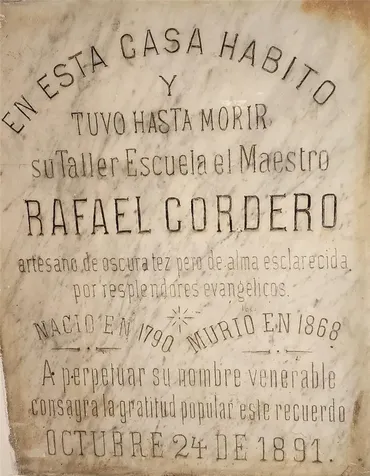 EN ESTA CASA HABITO
Y
TUVO HASTA MORIR
su Taller Escuela el Maestro
RAFAEL CORDERO
artesano de oscura tez pero de alma esclarecida
por resplendores evangélicos.
NACIO EN 1790 MURIO EN 1868
A perpetuar su nombre venerable
consagra la gratitud popular este recuerdo
OCTUBRE 24 DE 1891.